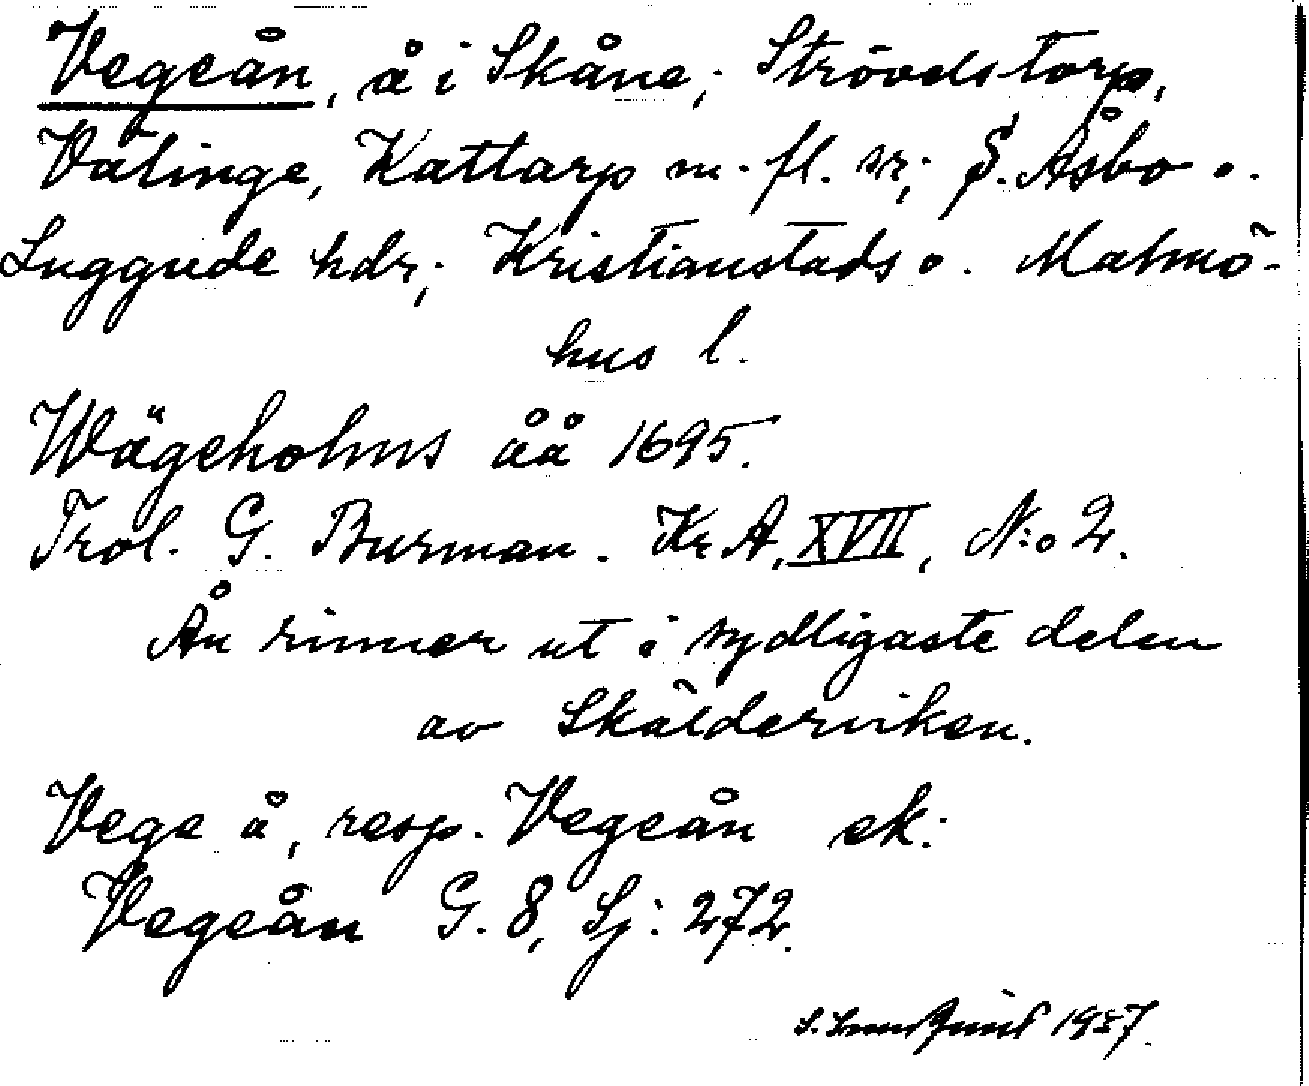 Vegeån, å i Skåne; Strövelstorp,
Välinge, Kattarp m. fl. sr; S. Åsbo o.
Luggude hdr; Kristianstads o. Malmö-
hus l.
Wägeholms åå 1695.
Trol. G. Burman. Kr A, XVII, N:o 2.
Ån rinner ut i sydligaste delen
av Skälderviken.
Vege å, resp. Vegeån ek:
Vegeån G. 8, Sj: 272.
1937.